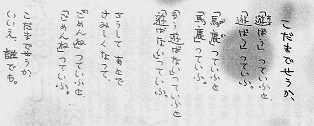 こだまでせうか、
「遊ばう」っていふと
「遊ばう」っていふ。
「馬鹿」っていふと
「馬鹿」っていふ。
「もう遊ばない」っていふと
「遊ばない」っていふ。
さうして あとで
さみしくなって、
「ごめんね」っていふと
「ごめんね」っていふ。
こだまでせうか、
いいえ、誰でも。